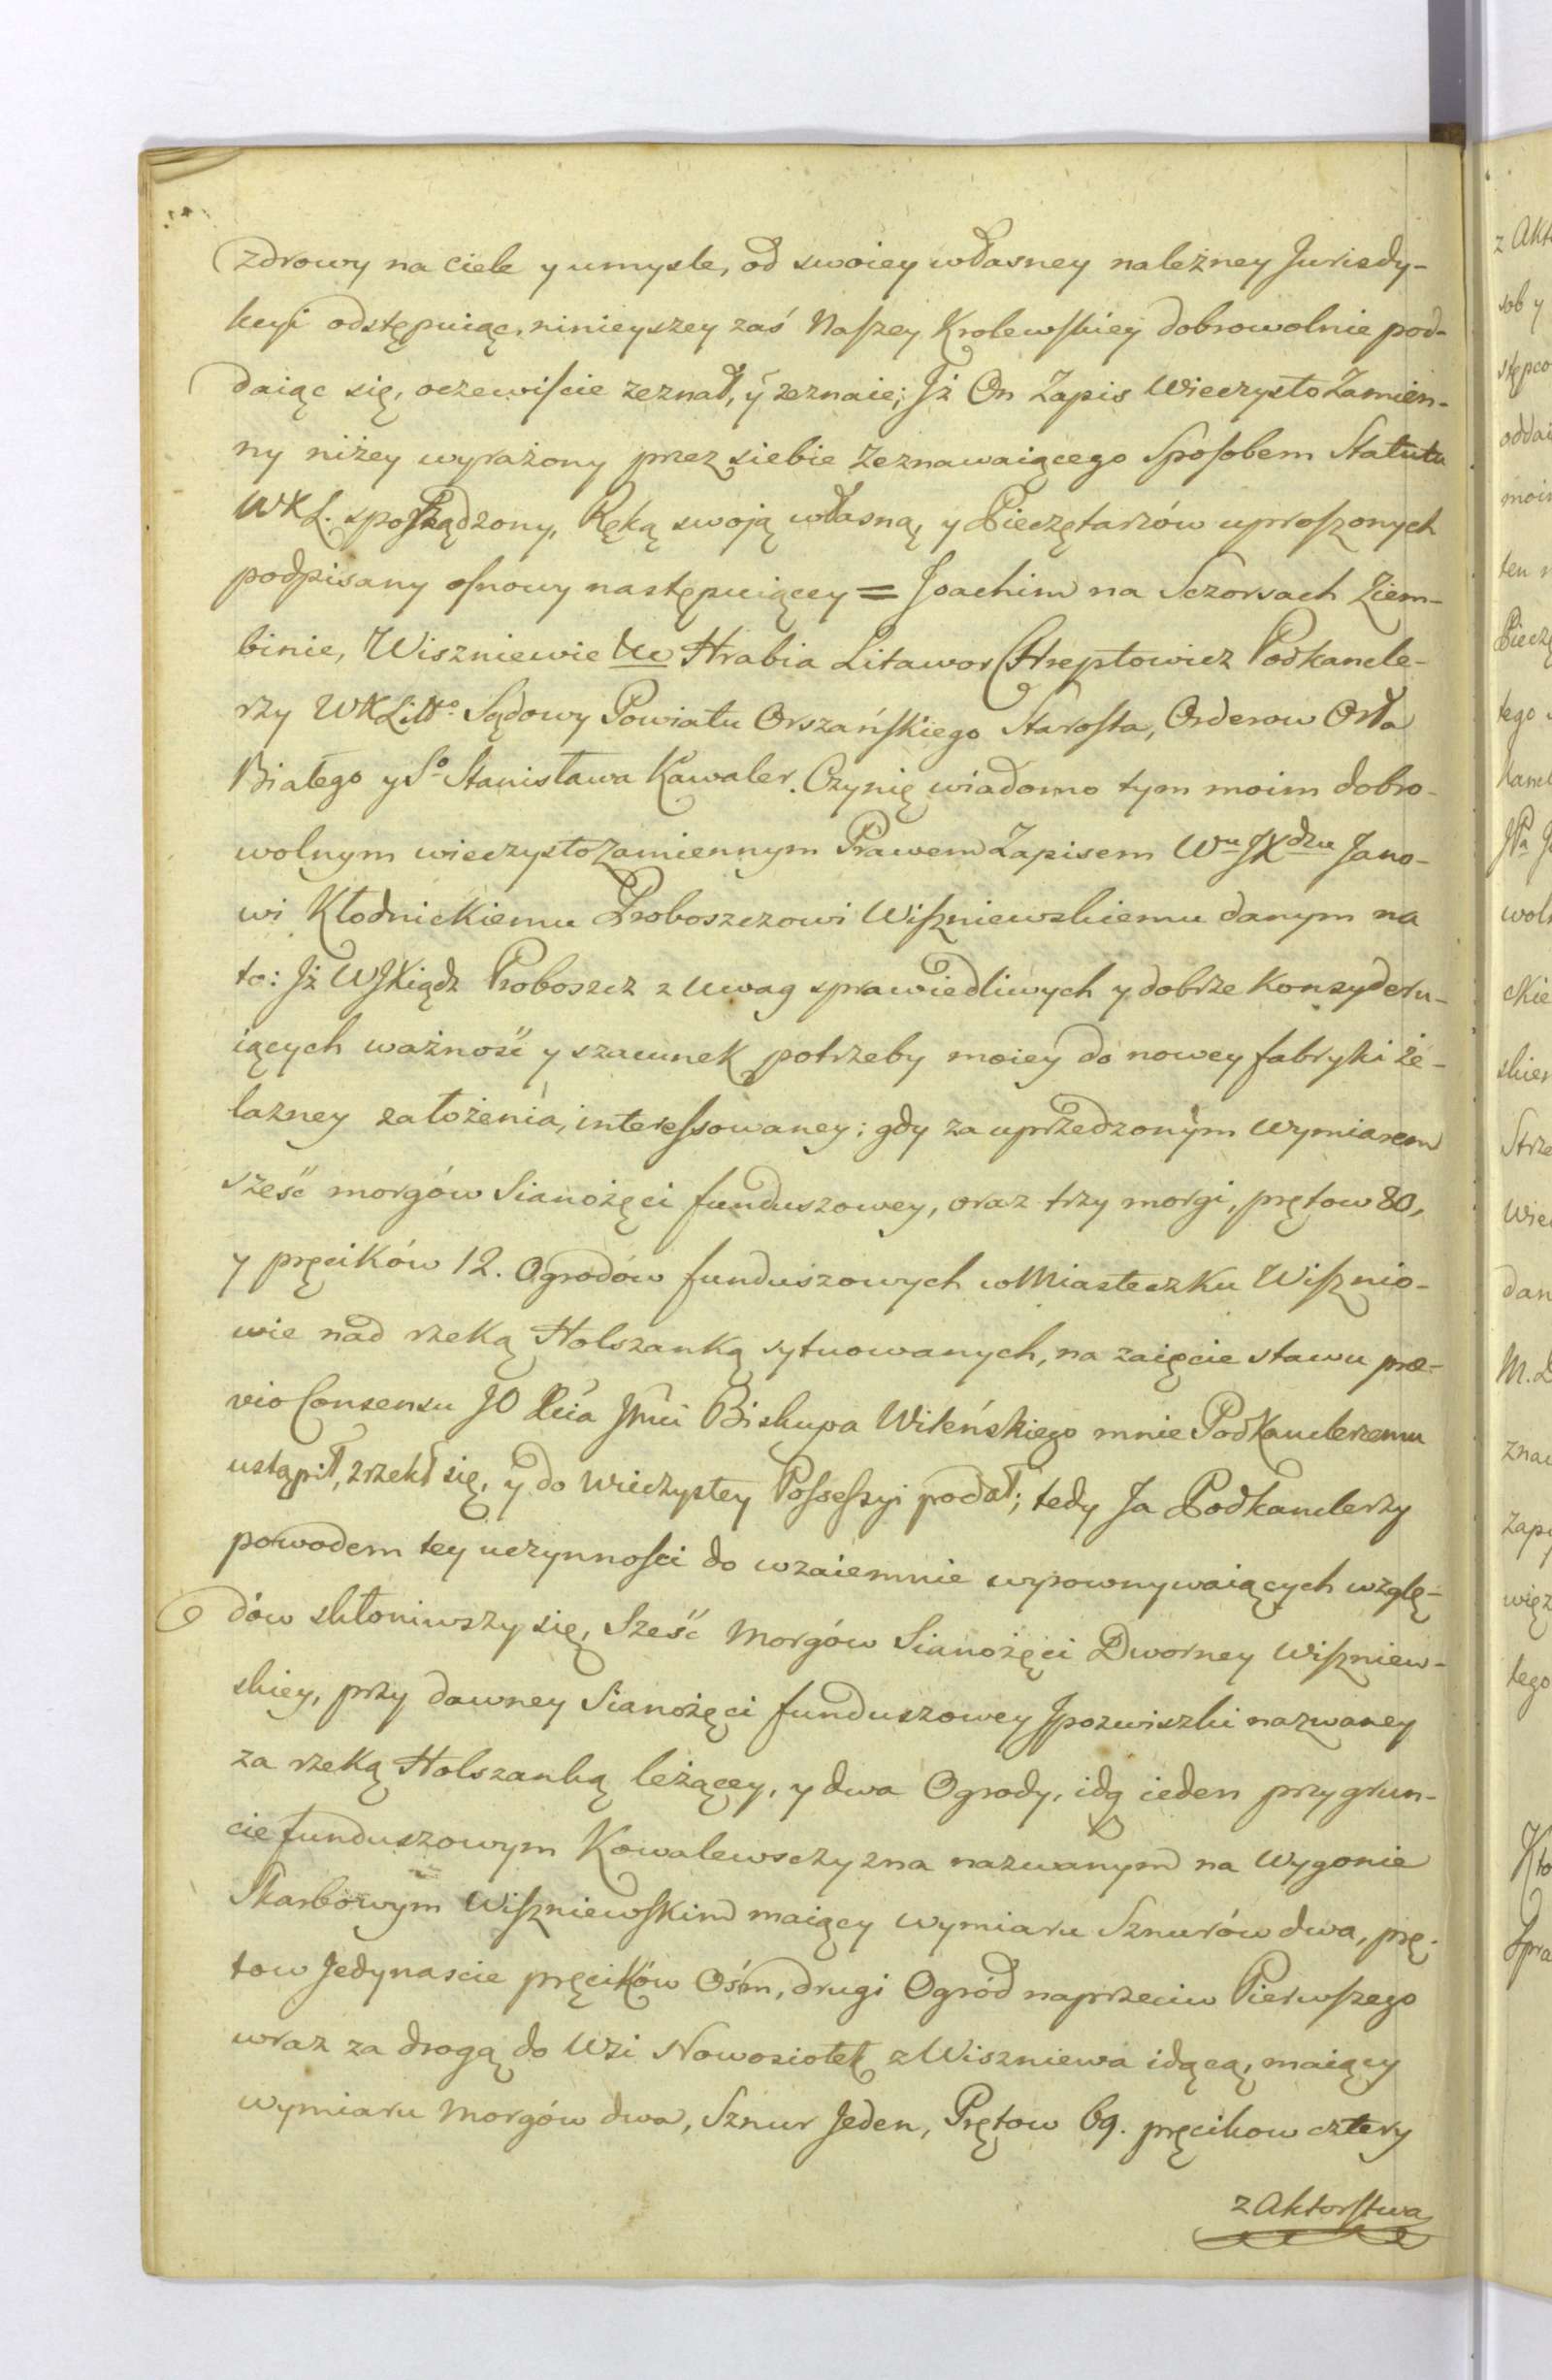 zdrowy na ciele y umysle, od swoiey własney należney Jurisdy-
kcyi odstępuiąc, ninieyszey zaś Naszey Krolewskiey dobrowolnie pod-
daiąc się, oczewiście zeznał, y zeznaie; Jż On Zapis Wieczysto Zamien-
ny niżey wyrażony przez siebie Zeznawaiącego Sposobem Statutu
WXL. sporządzony, Ręką swoją własną, y Pieczętarzów uproszonych
podpisany osnowy następuiącey = Joachim na Sczorsach Ziem-
binie, Wiszniewie &c Hrabia Litawor Chreptowicz Podkancle-
rzy WXLittº. Sądowy Powiatu Orszańskiego Starosta, Orderow Orła
Białego y Sº Stanisława Kawaler. Czynię wiadomo tym moim dobro-
wolnym wieczysto zamiennym Prawem Zapisem Wu JX dzu Jano-
wi Kłodnickiemu Proboszczowi Wiszniewskiemu danym na
to: Jż WJXiądz Proboszcz z Uwag sprawiedliwych y dobrze konsyderu-
iących ważność y szacunek potrzeby moiey do nowey fabryki że-
lazney założenia, interessowaney; gdy za uprzedzonym Wymiarem
sześć morgów Sianożęci funduszowey, oraz trzy morgi, prętow 80,
y pręcików 12. Ogrodów funduszowych w Miasteczku Wisznio-
wie nad rzeką Holszanką sytuowanych, na zaięcie stawu præ-
vio Consensu JO Xcia Jmci Biskupa Wileńskiego mnie Podkanclerzemu
ustąpił, zrzekł się, y do wieczystey Possessyi podał; tedy Ja Podkanclerzy
powodem tey uczynności do wzaiemnie wyrownywaiących wzglę-
dów skłoniwszy się, Sześć Morgów Sianożęci Dworney Wiszniew-
skiey, przy dawney Sianożęci funduszowey Jpozwiszki nazwaney
za rzeką Holszanką leżącey, y dwa Ogrody, idq ieden przy grun-
cie funduszowym Kowalewsczyzna nazwanym na Wygonie
Skarbowym Wiszniewskim maiący wymiaru Sznurów dwa, prę-
tow Jedynascie pręcików Ośm, drugi Ogród naprzeciw Pierwszego
wraz za drogą do Wsi Nowosiołek z Wiszniewa idącą, maiący
wymiaru Morgów dwa, Sznur Jeden, Prętow 69. pręcikow cztery
z Aktorstwa